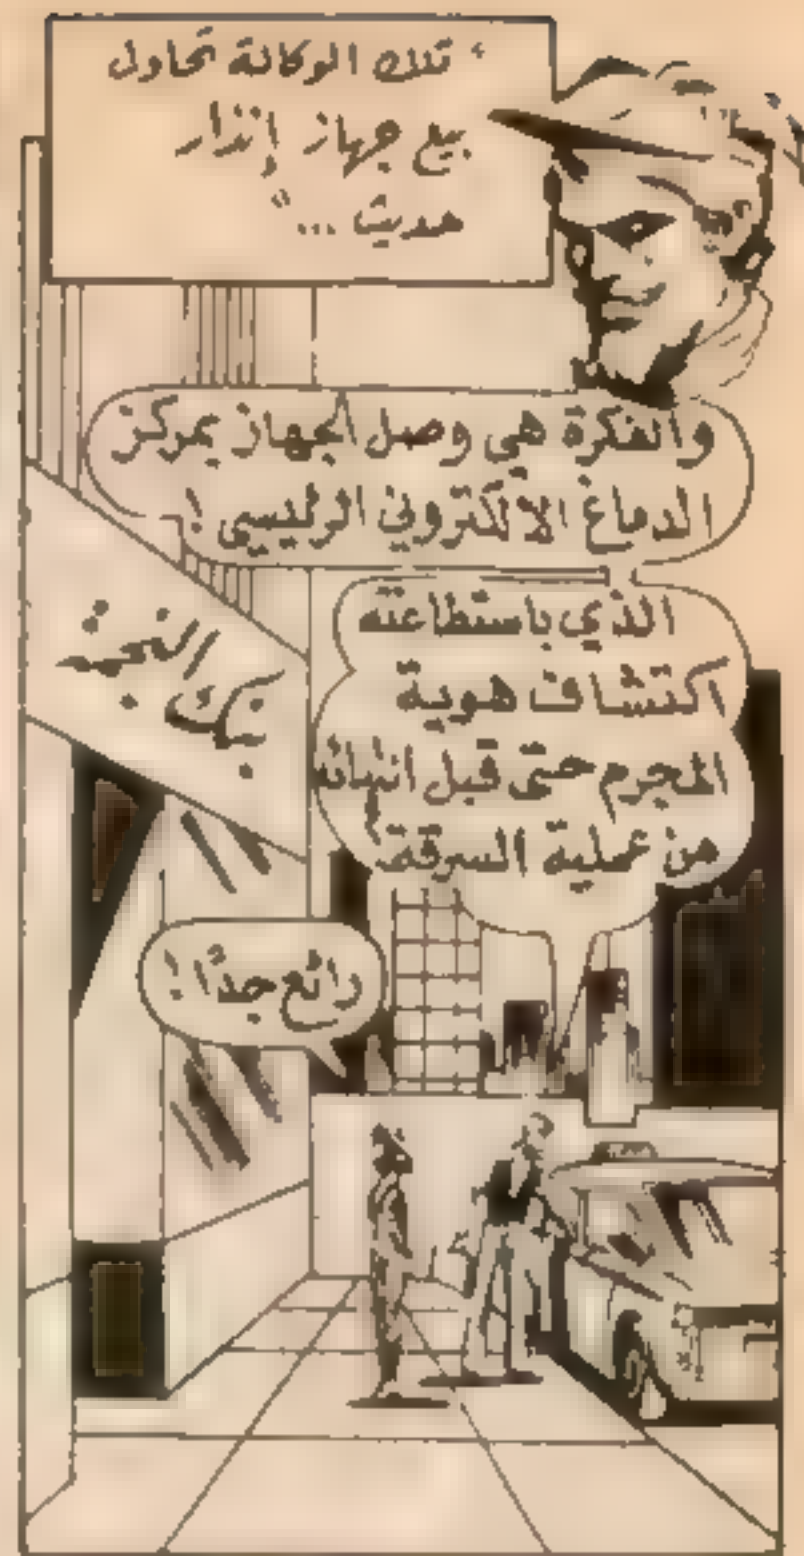 "تلك الوكالة تحاول
بيع جهاز إنذار
حديث ..."
والفكرة هي وصل الجهاز بمركز
الدماغ الالكتروني الرئيسي !
الذي باستطاعته
اكتشاف هوية
المجرم حتى قبل انتهائه
من عملية السرقة
بنك النجمة
رائع جدًا !